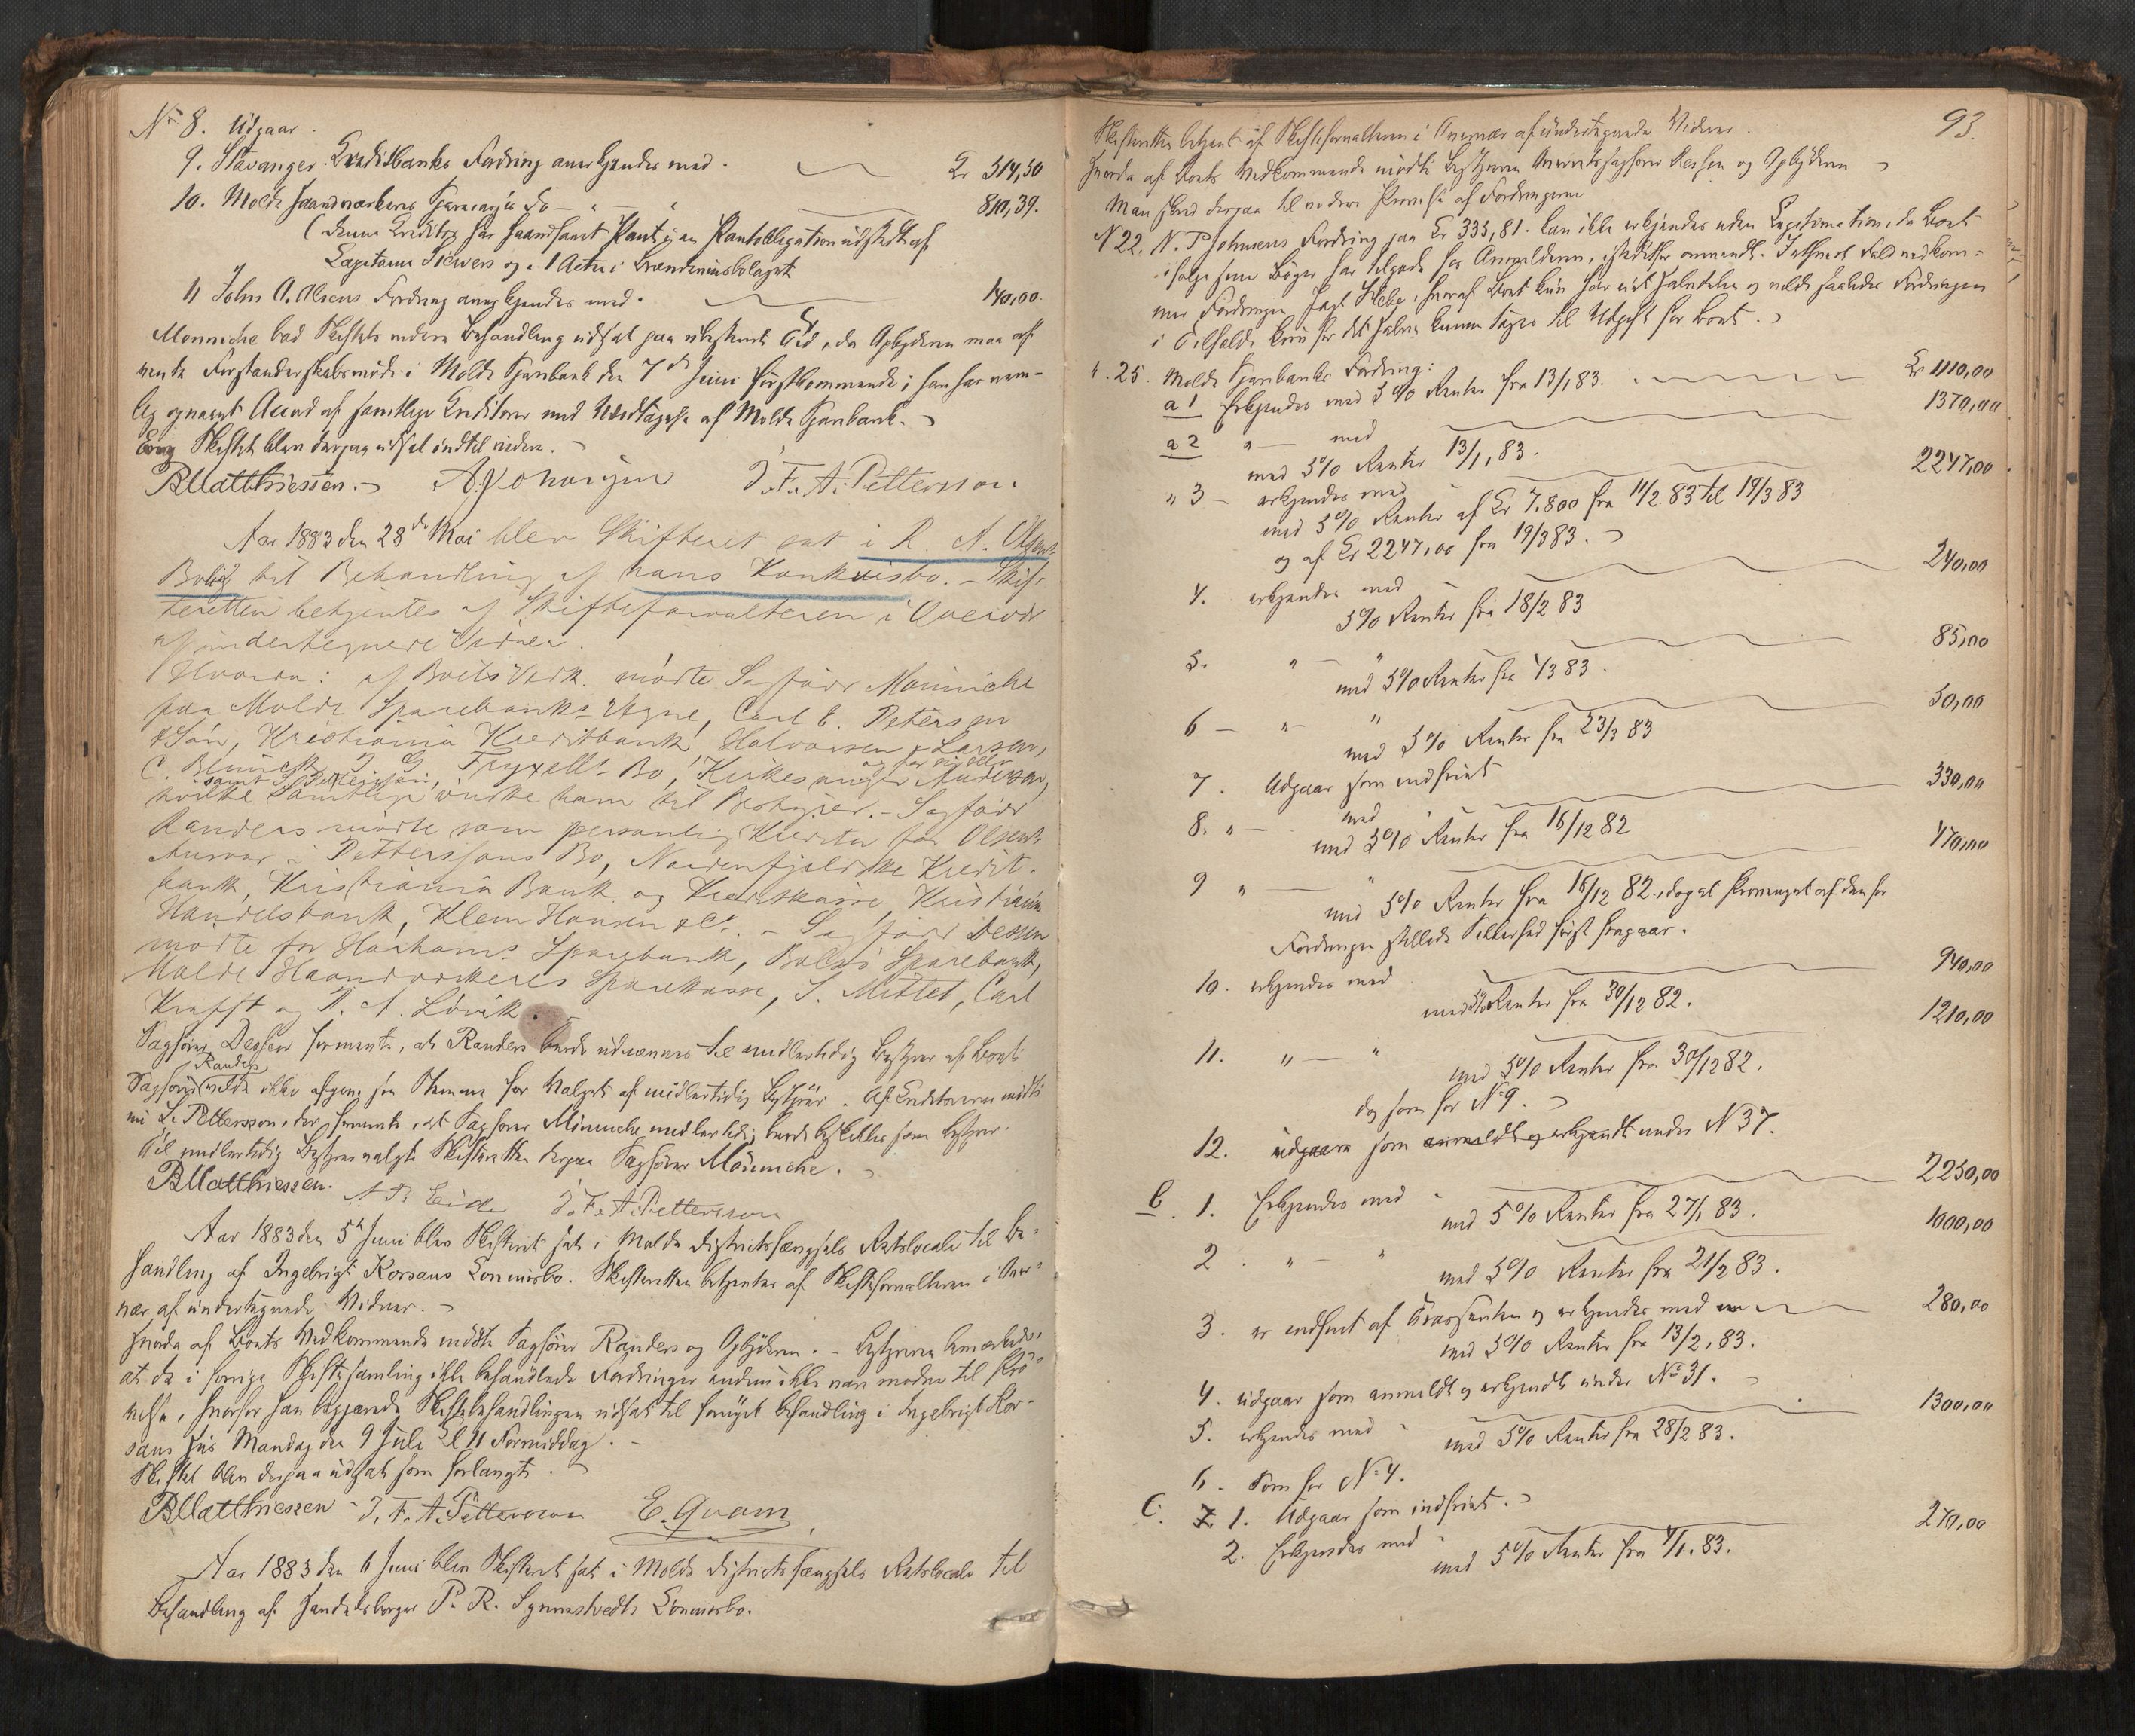 No 8. Udgaar.
9. Stavanger Kreditbanks Fordring anerkjendes med. Kr 514,50
10. Molde Haandværkeres Sparekasse do - " - " 810,39.
(denne Kreditor har haandfaaet Pant i en Pantobligation udstedt af
Capitaine Siewers og 1 Actie i Brændeviinsbolaget
11 John A. Olsens Fordring anerkjendes med. 140,00.
Mønniche bad Skiftets videre Behandling udsat paa ubestemt Tid, da Opbyderen maa af-
vente Forstanderskabsmøde i Molde Sparebank den 7de Juni førstkommende; han har nem-
lig opnaaet Accord af samtlige Kreditorer med Undtagelse af Molde Sparebank.
Skiftet blev derpaa udsat indtil videre.
B Matthiessen. A. Johansen J. F. A. Pettersson.
Aar 1883 den 28de Mai blev Skifteret sat i R. A. Olsens
Bolig til Behandling af hans Konkursbo. - Skif-
teretten betjentes af Skifteforvalteren i Overvær
af undertegnede Vidner.
Hvorda: af Boets Vedk. mødte Sagfører Mønniche
paa Molde Sparebanks Vegne, Carl E. Petersen
& Søn, Kristiania Kreditbank, Halvorsen & Larsen,
C. Blunck, J. G. Fryxells Bo, Kirkesanger Andersen,
og for sig selv
samt J. Pettersson,
hvilke samtlige ønske ham til Bestyrer. - Sagfører
Randers mødte som personlig Kreditor for Olsens
Ansvar i Petterssons Bo, Nordenfjeldske Kredit-
bank, Kristiania Bank og Kreditkasse, Kristiania
Handelsbank, Klem Hansen & Co. - Sagfører Dessen
mødte for Harhams Sparebank, Bolsø Sparebank,
Molde Haandværkeres Sparekasse, S. Mittet, Carl
Krafft og P. A. Løvik.
Sagfører Dessen formente, at Randers burde udnævnes til midlertidig Bestyrer af Boet.
Randers
Sagfører vilde ikke afgive sin Stemme for Valget af midlertidig Bestyrer. Af Kreditorerne mødte
nu J. Pettersson, der formente, at Sagfører Mønniche midlertidig burde beskikkes som Bestyrer.
Til midlertidig Bestyrer valgte Skifteretten derpaa Sagfører Mønniche.
B Matthiessen. A. B. Eide J. F. A. Pettersson
Aar 1883 den 5te Juni blev Skifteret sat i Molde Distriktsfængsels Retslocale til Be-
handling af Ingebrigt Korsans Concursbo. Skifteretten betjentes af Skifteforvalteren i Over-
vær af undertegnede Vidner.
Hvorda af Boets Vedkommende mødte Sagfører Randers og Opbyderen. - Bestyreren bemærkede,
at de i forrige Skiftesamling ikke behandlede Fordringer endnu ikke vare modne til Prø-
velse, hvorfor han begjærede Skiftebehandlingen udsat til fornyet Behandling i Ingebrigt Kor-
sans Huus Mandag den 9 Juli Kl 11 Formiddag.
Skiftet blev derpaa udsat som forlangt.
B Matthiessen J. F. A. Pettersson E. Qvam
Aar 1883 den 6 Juni blev Skifteret sat i Molde Distriktsfængsels Retslocale til
Behandling af Handelsborger P. R. Synnestvedts Concursbo.
93.
Skifteretten betjent af Skifteforvalteren i Overvær af undertegnede Vidner.
Hvorda af Boets Vedkommende mødte Bestyreren Overretssagfører Dessen og Opbyderen
Man skred derpaa til videre Prøvelse af Fordringerne
N 22. N. P. Johnsens Fordring paa Kr 335,81. kan ikke erkjendes uden Legitimation, da Boet
ifølge sine Bøger har tilgode hos Anmelderen, istedetfor omvendt. I ethvert Fald vedkom-
mer Fordringen Jagt Hebe, hvoraf Boet kun har eiet Halvdelen og vilde saaledes Fordringen
i Tilfælde kun for det halve kunne tages til Udgift for Boet.
". 25. Molde Sparebanks Fordring:
a 1 Erkjendes med 5 % Renter fra 13/1 83. Kr 1110,00
a 2 " - med 1370,00
med 5% Renter 13/1, 83.
" 3 - erkjendes med 2247,00
med 5% Renter af Kr 7.800 fra 11/2 83 til 19/3 83
og af Kr 2247,00 fra 19/3 83.
4. erkjendes med 240,00
5% Renter fra 18/2 83
5. " - " 85,00
med 5% Renter fra 1/3 83.
6 - " - " 50,00
med 5% Renter fra 23/3 83
7. Udgaar som indfriet
8. " - med 330,00
med 5% Renter fra 16/12 82
9 " - " 470,00
med 5% Renter fra 16/12 82, dog at Provenuet af den for
Fordringen stillede Sikkerhed først fragaar.
10. erkjendes med 940,00
med 5% Renter fra 30/12 82.
11. " - " 1210,00
med 5% Renter fra 30/12 82.
dog som for No 9.
12. udgaar som anmeldt og erkjendt under N 37.
b. 1. Erkjendes med 2250,00
med 5% Renter fra 27/1 83.
2. " - " 1000,00
med 5% Renter fra 21/2 83.
3. er indfriet af Trassenten og erkjendes med 280,00
med 5% Renter fra 13/2, 83.
4. udgaar som anmeldt og erkjendt under No 31.
5. erkjendes med 1300,00
med 5% Renter fra 28/2 83.
6. Som for No 4.
C. 1. Udgaar som indfriet.
2. Erkjendes med 270,00
med 5% Renter fra 4/1. 83.